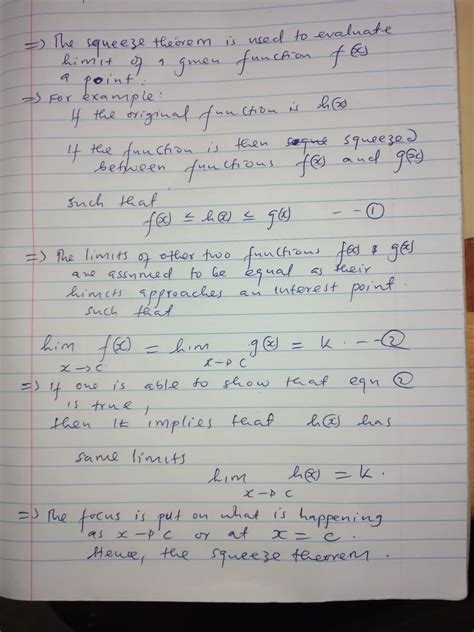 => The squeeze theorem is used to evaluate
limit of a given function f(x)
a point.
=> For example:
If the original function is h(x)
If the function is then squeezed
between functions f(x) and g(x)
such that
f(x) ≤ h(x) ≤ g(x) -- ①
=> The limits of other two functions f(x) & g(x)
are assumed to be equal as their
limits approaches an interest point.
such that
lim f(x) = lim g(x) = k. -- ②
x→c x→c
=> If one is able to show that eqn ②
is true,
then it implies that h(x) has
same limits
lim h(x) = k.
x→c
=> The focus is put on what is happening
as x→c or at x = c.
Hence, the squeeze theorem.